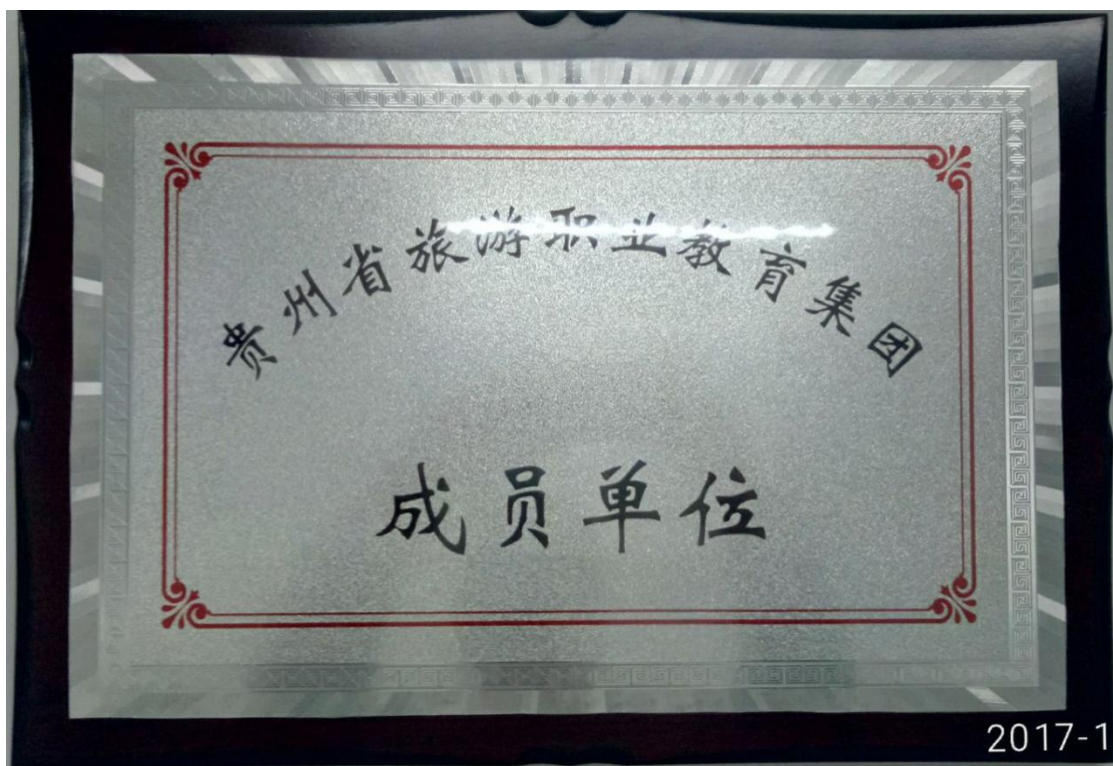 贵州省旅游职业教育集团
成员单位
2017-1